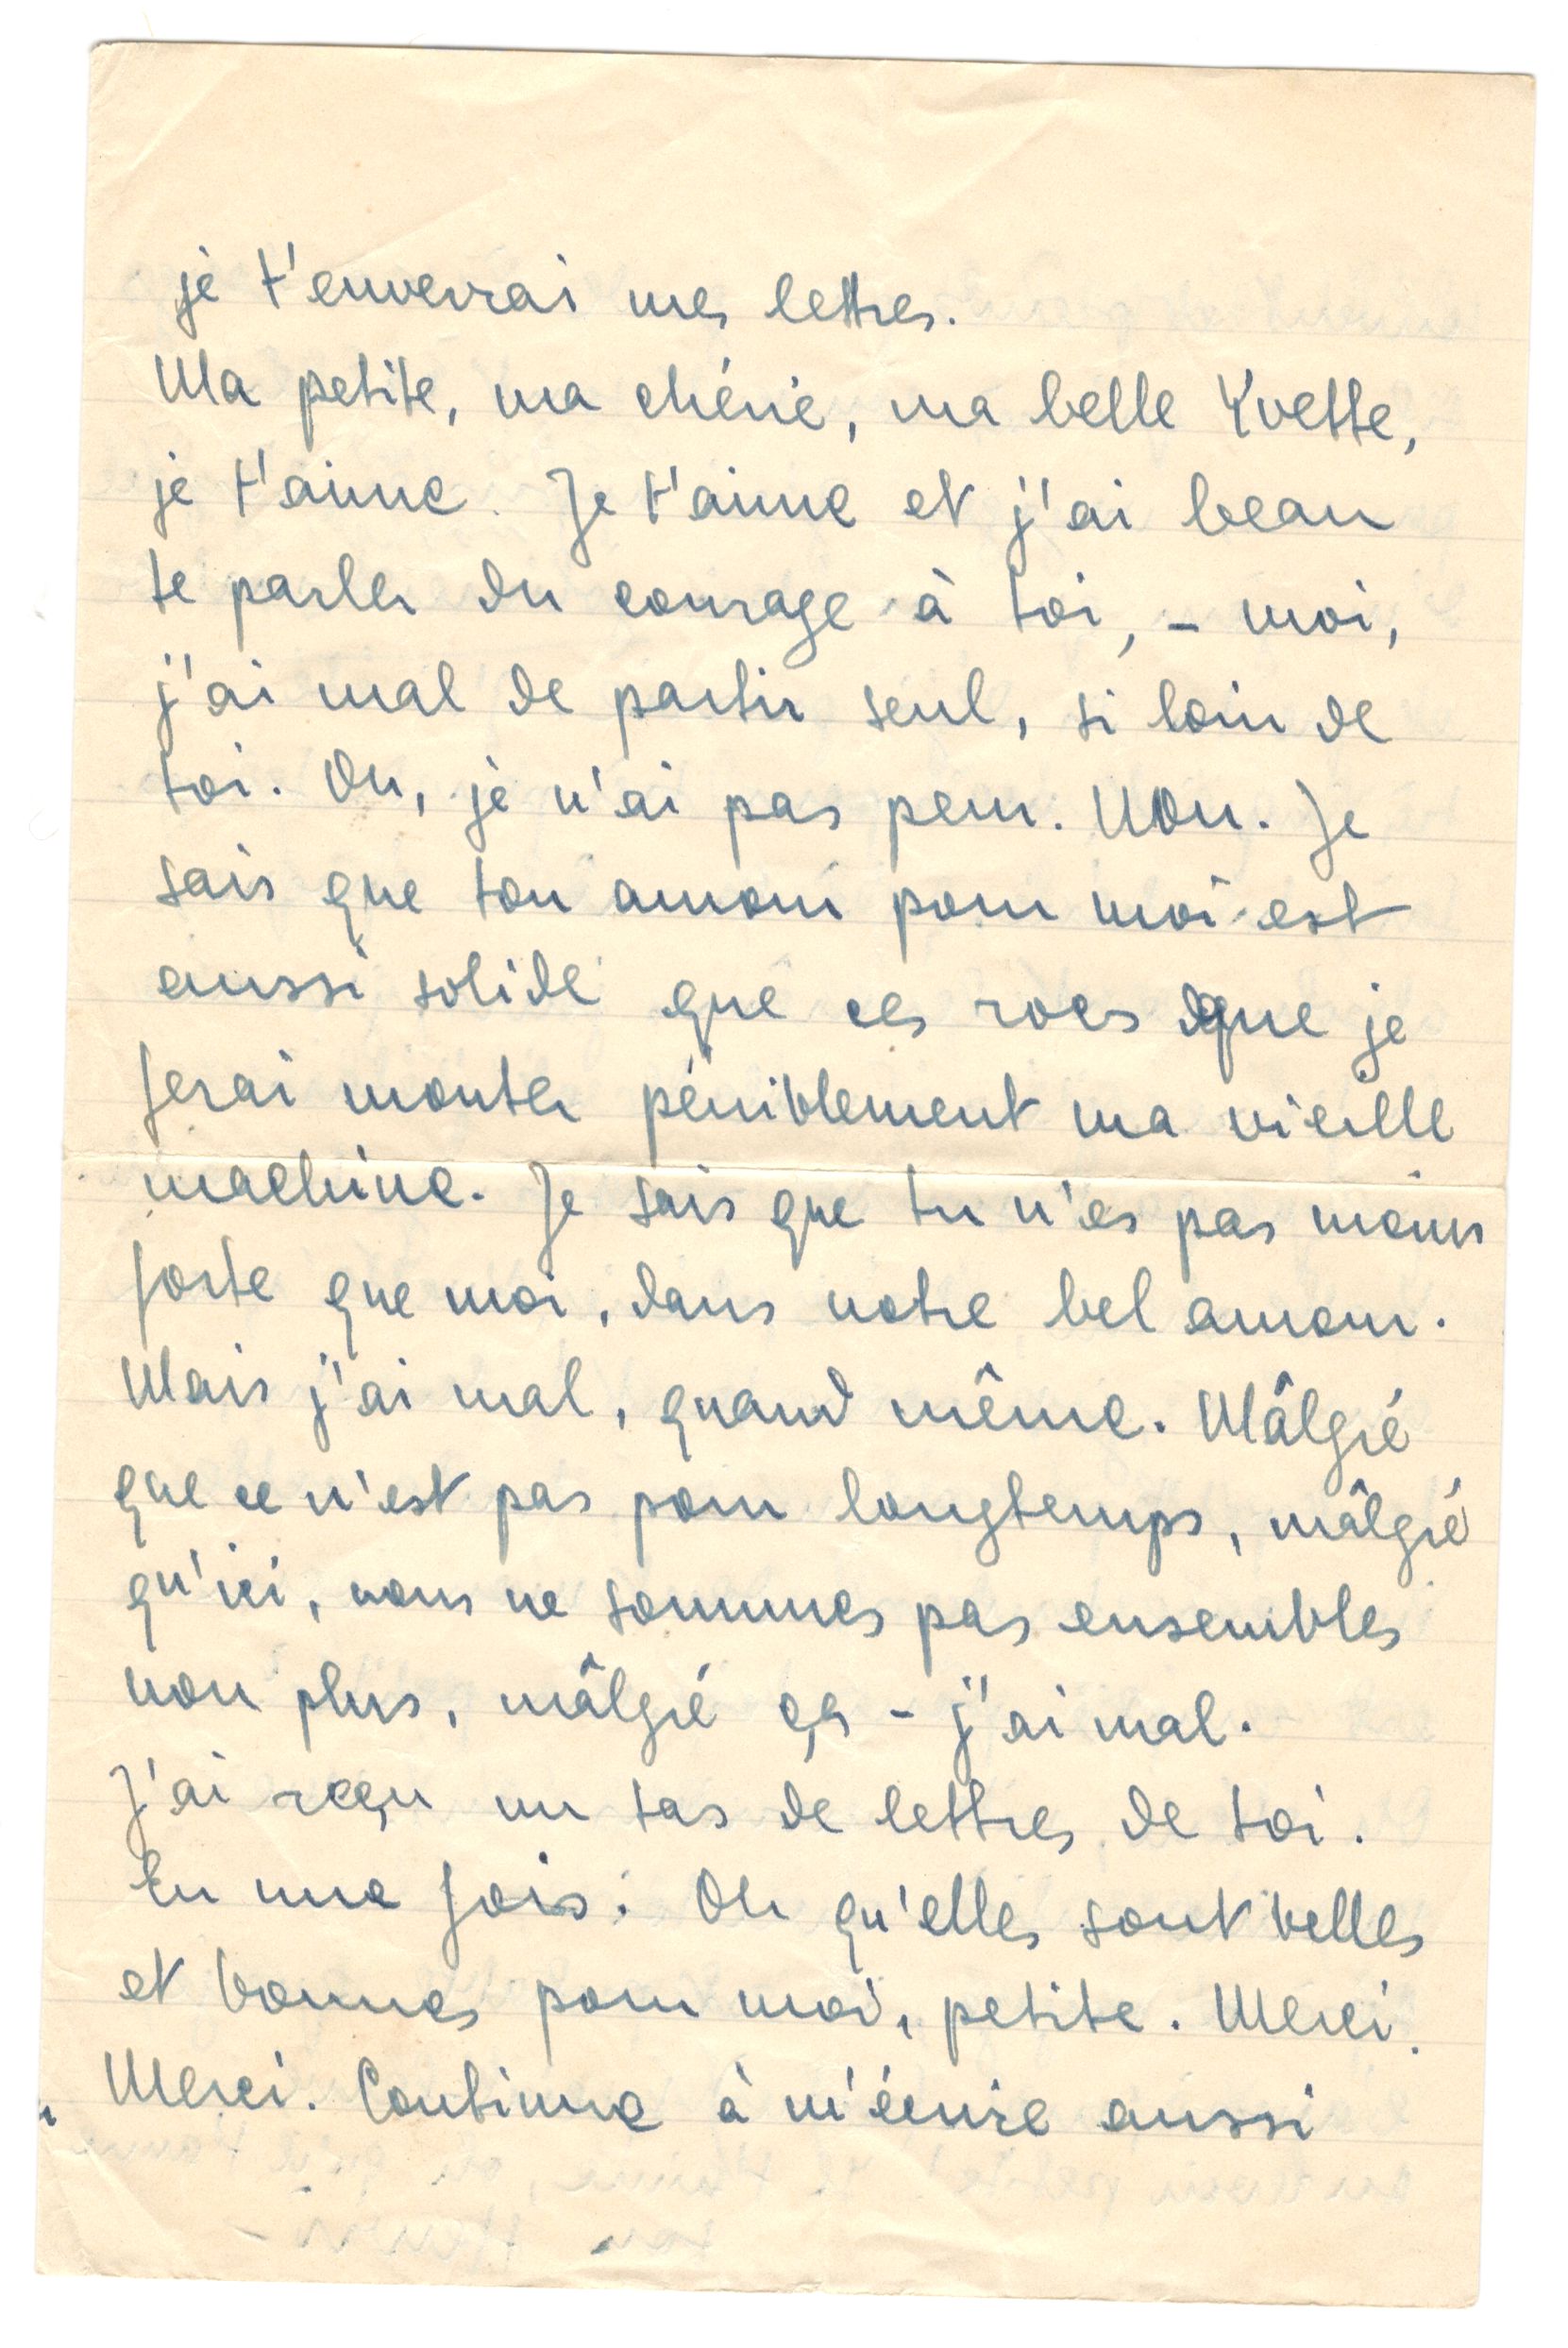 je t'enverrai mes lettres.
Ma petite, ma chérie, ma belle Yvette,
je t'aime. Je t'aime et j'ai beau
te parler du courage à toi, - moi,
j'ai mal de partir seul, si loin de
toi. Oh, je n'ai pas peur. Non. Je
sais que ton amour pour moi est
aussi solide que ces rocs que je
ferai monter péniblement ma vieille
machine. Je sais que tu n'es pas moins
forte que moi, dans notre bel amour.
Mais j'ai mal, quand même. Mâlgré
que ce n'est pas pour longtemps, mâlgré
qu'ici, nous ne sommes pas ensembles
non plus, mâlgré ça - j'ai mal.
J'ai reçu un tas de lettres de toi.
En une fois. Oh qu'elles sont belles
et bonnes pour moi, petite. Merci.
Merci. Continue à m'écrire aussi